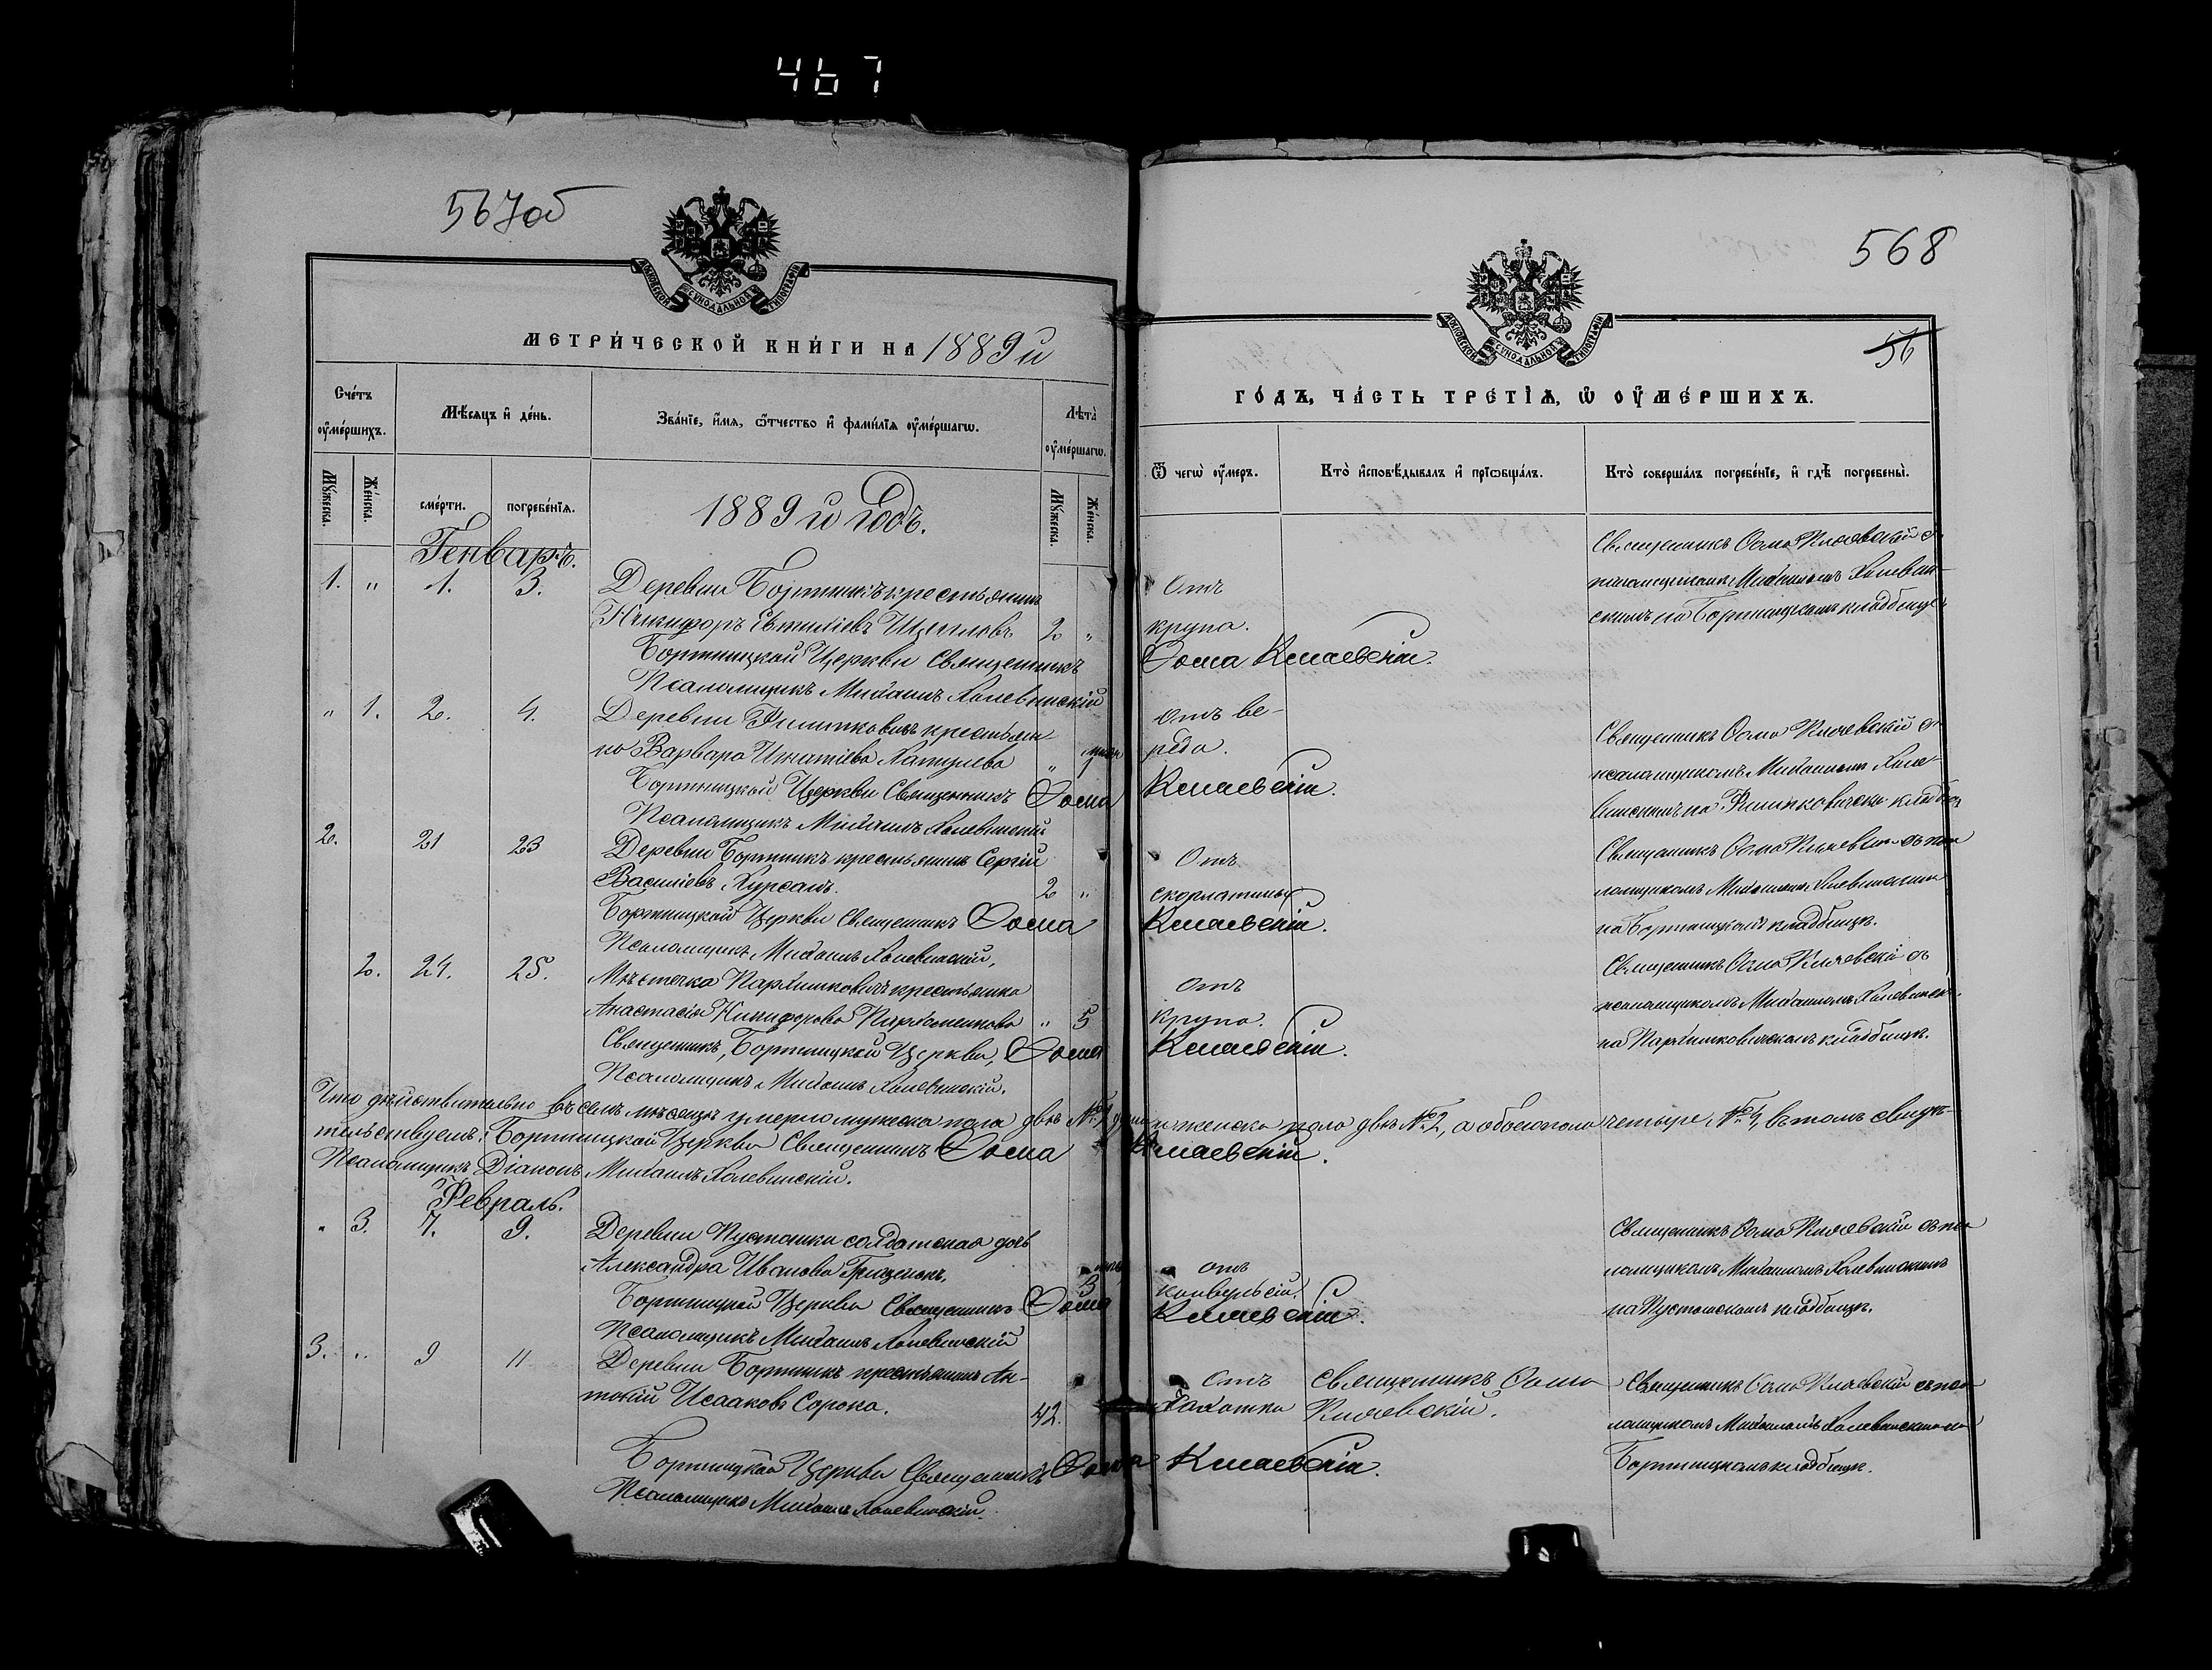 467
567об
МОСКОВСКОЙ СѴНОДАЛЬНОЙ ТИПОГРАФІИ
МЕТРИ́ЧЕСКОЙ КНИ́ГИ НА 1889 й
Сче́тъ ᲂу҆ме́ршихъ.
Мѣ́сѧцъ и҆ де́нь.
Зва́нїе, и҆́мѧ, ѻ҆́тчество и҆ фами́лїѧ ᲂу҆ме́ршагѡ.
Лѣта̀ ᲂу҆ме́ршагѡ.
Мꙋ́жеска.
Же́нска.
сме́рти.
погребе́нїѧ.
Мꙋ́жеска.
Же́нска.
1889 й годъ.
Генварь.
1. " 1. 3. Деревни Бортникъ крестьянинъ
Никифоръ Евтихіевъ Щегловъ 2 "
Бортницкой Церкви Священникъ
Псаломщикъ Михаилъ Холевинскій
" 1. 2. 4. Деревни Филипковичъ крестьян-
ка Варвара Игнатіева
Бортницкой Церкви Священникъ Ѳома
Псаломщикъ Михаилъ Холевинскій
2. 21 23 Деревни Бортникъ крестьянинъ Сергій
Василіевъ Хурсанъ. 2 "
Бортницкой Церкви Священникъ Ѳома
Псаломщикъ Михаилъ Холевинскій,
2. 24. 25. Мѣстечка крестьянка
Анастасія Никифорова Пархоменкова " 5
Священникъ, Бортницкой Церкви, Ѳома
Псаломщикъ Михаилъ Холевинскій.
Что дѣйствительно въ семъ мѣсяцѣ умерло мужеска пола двѣ №2, женска пола двѣ №2, а обоего пола четыре, №4, въ томъ свидѣ-
тельствуемъ: Бортницкой Церкви Священникъ Ѳома
Псаломщикъ Діаконъ, Михаилъ Холевинскій.
Февраль.
" 3. 7. 9. Деревни Пустошки солдатская дочь
Александра Иванова Грищенокъ. 3
Бортницкой Церкви Священникъ Ѳома
Псаломщикъ Михаилъ Холевинскій
3. " 9 11 Деревни Бортникъ крестьянинъ Ан-
тоній Исааковъ Сорока. 42.
Бортницкой Церкви Священникъ Ѳома
Псаломщикъ Михаилъ Холевинскій.
568
56
МОСКОВСКОЙ СѴНОДАЛЬНОЙ ТИПОГРАФІИ
ГО́ДЪ, ЧА́СТЬ ТРЕ́ТЇѦ, Ѡ҆ ОУ҆МЕ́РШИХЪ.
Ѿ чегѡ̀ ᲂу҆́меръ.
Кто̀ и҆сповѣ́дывалъ и҆ прїѡбща́лъ.
Кто̀ соверша́лъ погребе́нїе, и҆ гдѣ̀ погребены̀.
Священникъ Ѳома Кисаевскій съ
псаломщикомъ Михаиломъ Холевин-
скимъ на Бортницкомъ кладбищѣ
Отъ
крупа.
Ѳома Кисаевскій.
Отъ ве-
реда.
Кисаевскій.
Священникъ Ѳома Кисаевскій съ
псаломщикомъ Михаиломъ Холе-
винскимъ на Филипковичскомъ
Отъ
скарлатины
Кисаевскій.
Священникъ Ѳома Кисаевскій съ пса
ломщикомъ Михаиломъ Холевинскимъ
на Бортницкомъ кладбищѣ.
Отъ
крупа.
Кисаевскій.
Священникъ Ѳома Кисаевскій съ
псаломщикомъ Михаиломъ Холевинск.
на кладбищѣ.
Кисаевскій.
отъ
конвульсій.
Кисаевскій.
Священникъ Ѳома Кисаевскій съ пса
ломщикомъ Михаиломъ Холевинскимъ
на Пустошскомъ кладбищѣ.
Отъ
Священникъ Ѳома
Кисаевскій.
Кисаевскій.
Священникъ Ѳома Кисаевскій съ пса
ломщикомъ Михаиломъ Холевинскимъ на
Бортницкомъ кладбищѣ.